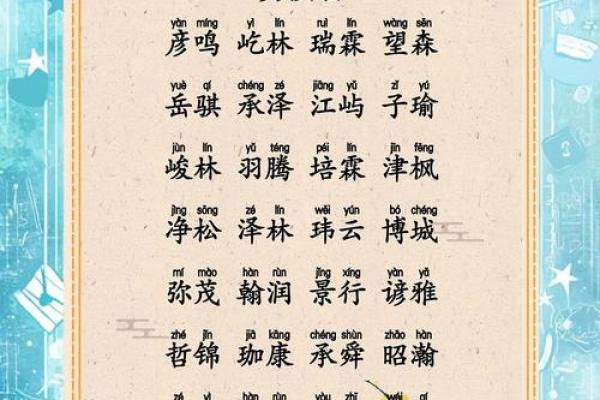 yàn míng yì lín ruì lín wàng sēn
彦鸣 屹林 瑞霖 望森
yuè qí chéng zé jiāng yǔ zǐ yú
岳骐 承泽 江屿 子瑜
jùn lín yǔ téng péi lín jīn fēng
峻林 羽腾 培霖 津枫
jìng sōng zé lín wěi yún bó chéng
净松 泽林 玮云 博城
mí mào hàn rùn jǐng xíng yàn yǎ
弥茂 翰润 景行 谚雅
zhé jǐn jiā kāng chéng shùn zhāo hàn
哲锦 珈康 承舜 昭瀚
zé yì hàn rùn yòu zhī wéi qí